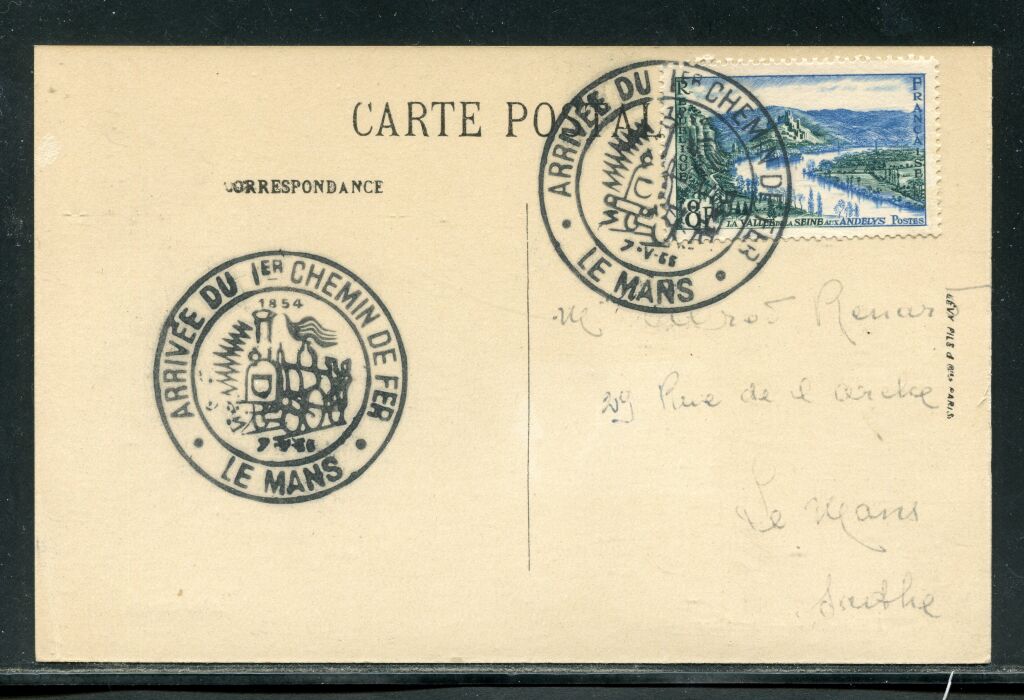 CARTE POSTALE
CORRESPONDANCE
ARRIVÉE DU 1ER CHEMIN DE FER
7-V-55
LE MANS
REPUBLIQUE
FRANÇAISE
8F
LA VALLÉE DE LA SEINE AUX ANDELYS POSTES
ARRIVÉE DU 1ER CHEMIN DE FER
1854
7-V-55
LE MANS
Mr Renard
29 Rue de l'arche
Le Mans
Sarthe
LÉVY FILS & Cie PARIS